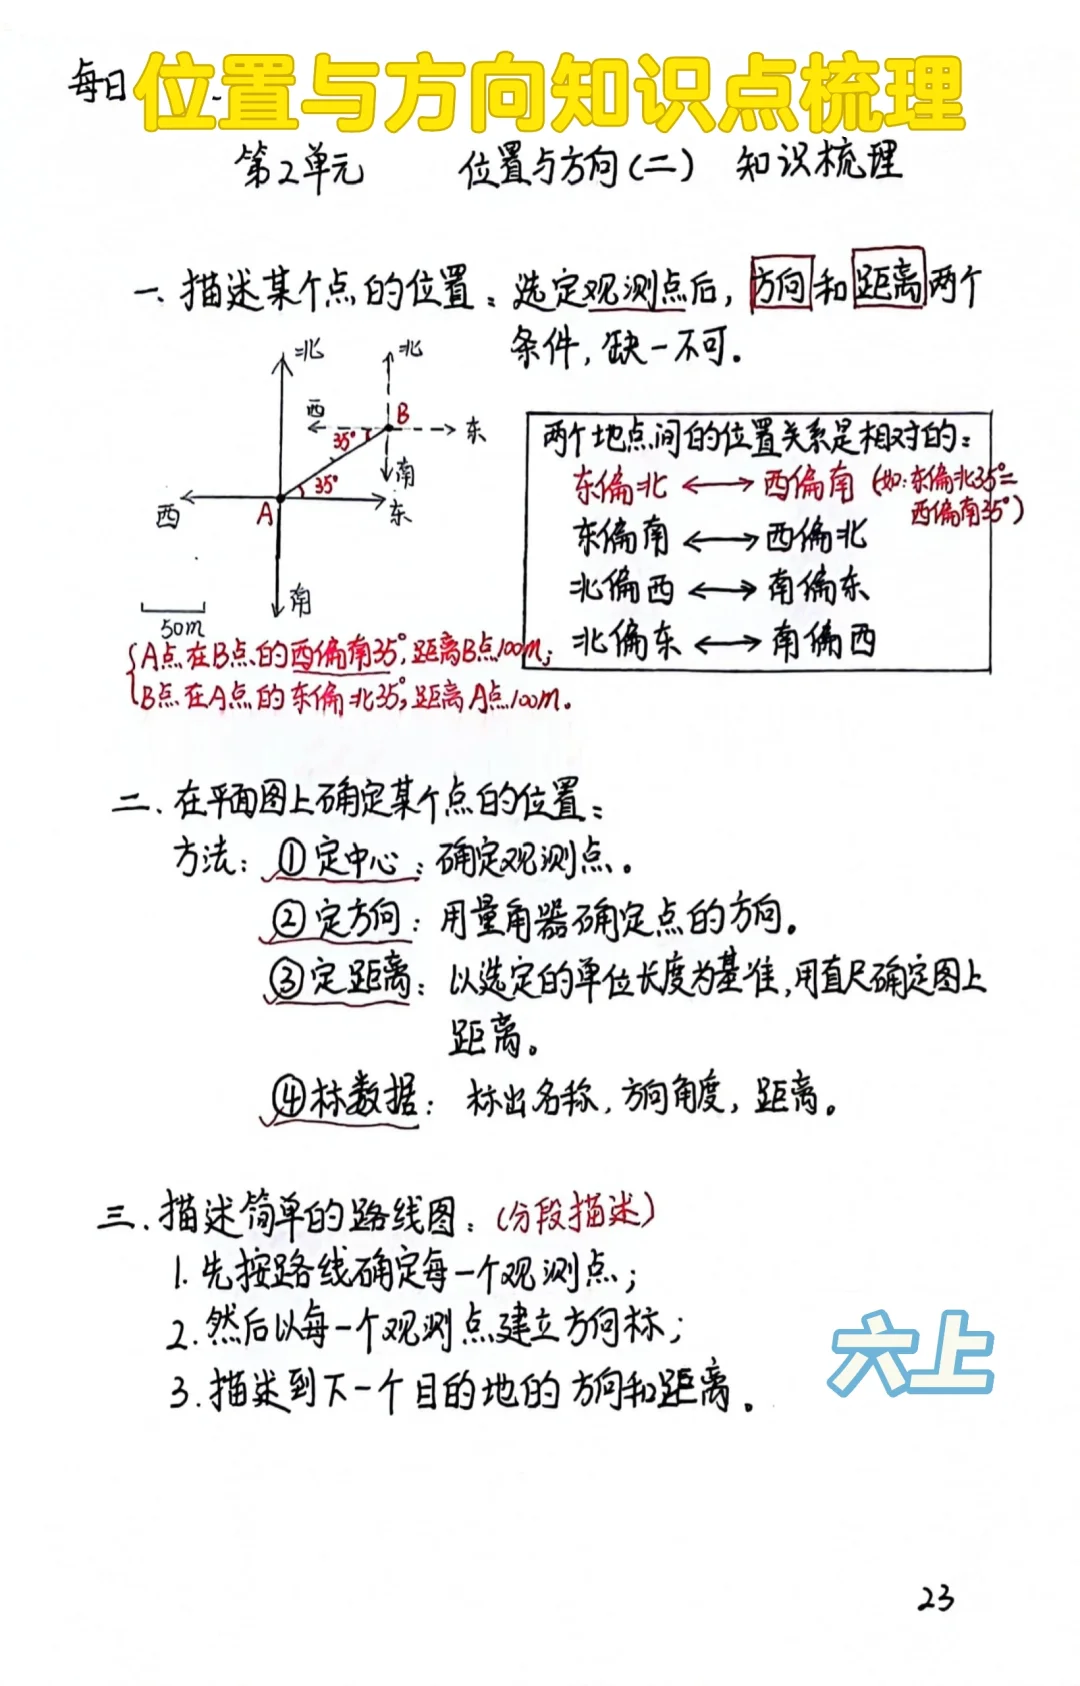 每日
位置与方向知识点梳理
第2单元 位置与方向(二) 知识梳理
一、描述某个点的位置：选定观测点后，方向和距离两个
条件，缺一不可。
北
北
西
B
东
35°
南
35°
西
A
东
南
50m
两个地点间的位置关系是相对的：
东偏北 ←→ 西偏南 (如：东偏北35°=
西偏南35°)
东偏南 ←→ 西偏北
北偏西 ←→ 南偏东
北偏东 ←→ 南偏西
A点在B点的西偏南35°，距离B点100m；
B点在A点的东偏北35°，距离A点100m。
二、在平面图上确定某个点的位置：
方法：①定中心：确定观测点。
②定方向：用量角器确定点的方向。
③定距离：以选定的单位长度为基准，用直尺确定图上
距离。
④标数据：标出名称，方向角度，距离。
三、描述简单的路线图：(分段描述)
1.先按路线确定每一个观测点；
2.然后以每一个观测点建立方向标；
3.描述到下一个目的地的方向和距离。
六上
23